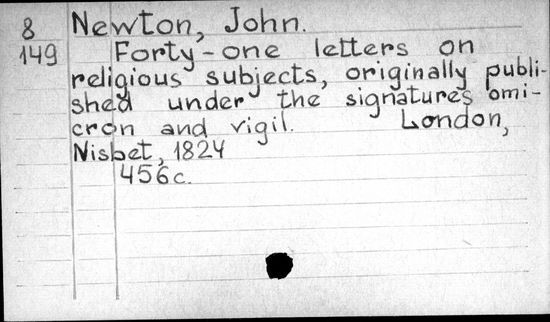 8 Newton, John.
149 Forty-one letters on
religious subjects, originally publi-
shed under the signatures omi-
cron and vigil. London,
Nisbet, 1824
456c.